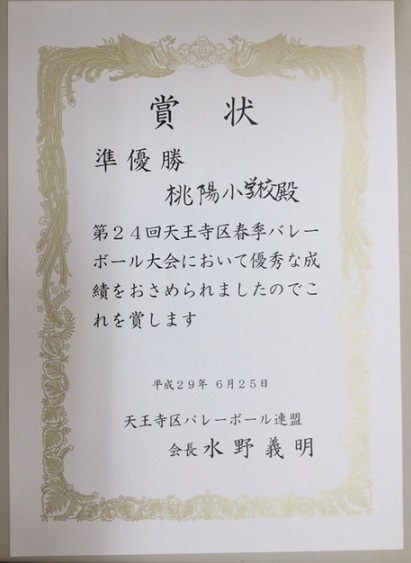 賞状
準優勝
桃陽小学校殿
第24回天王寺区春季バレー
ボール大会において優秀な成
績をおさめられましたのでこ
れを賞します
平成29年 6月25日
天王寺区バレーボール連盟
会長 水野義明